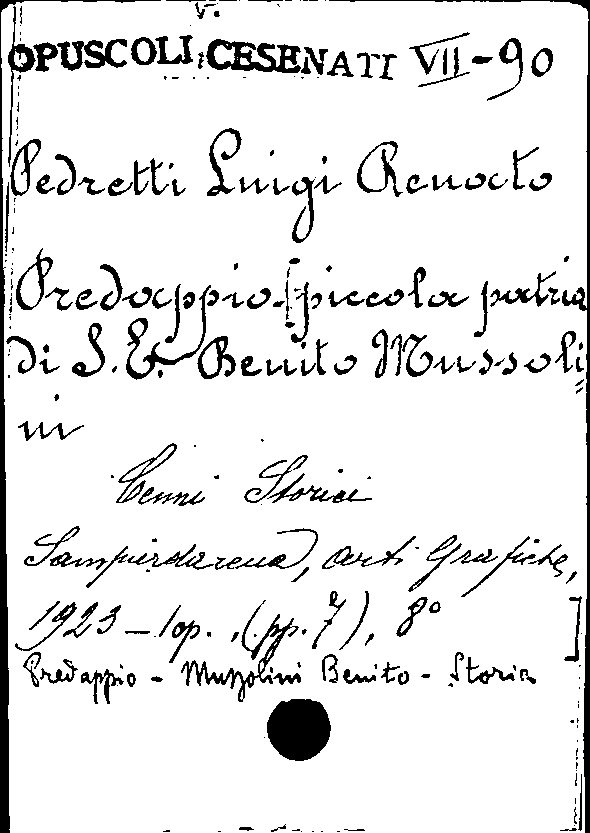 v.
OPUSCOLI CESENATI VII-90
Pedretti Luigi Renato
Predappio [piccola patria
di S. E. Benito Mussoli=
ni
Cenni Storici
Sampierdarena, Arti Grafiche,
1923 - 1 op. , (pp. 7), 8° ]
Predappio - Mussolini Benito - Storia